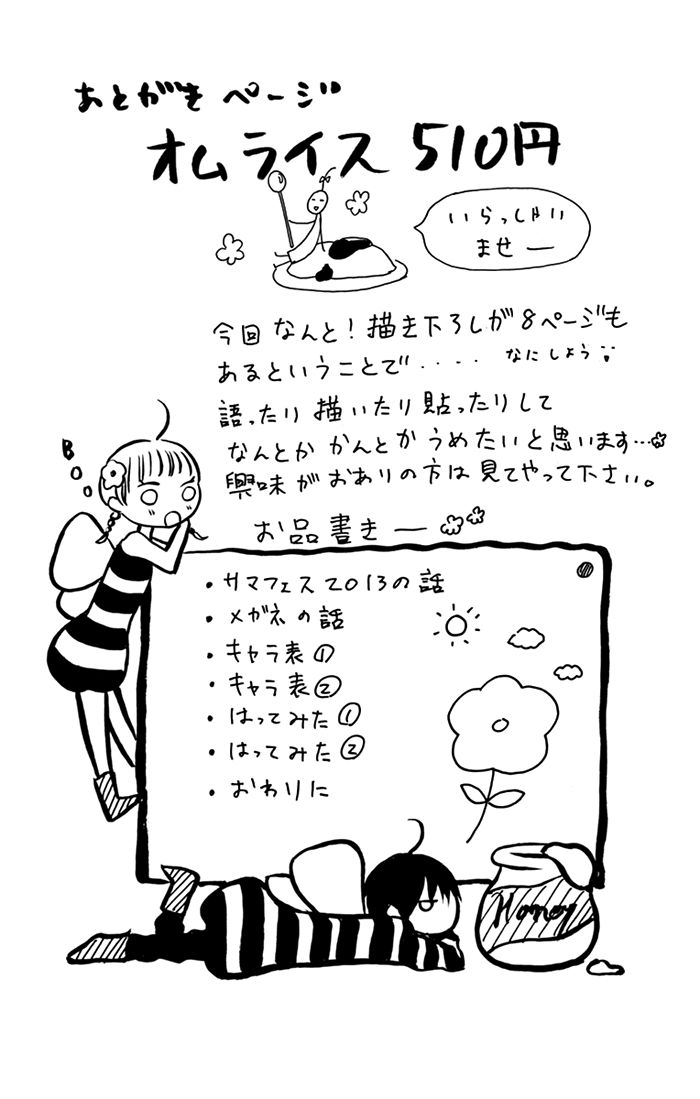 あとがきページ
オムライス 510円
いらっしゃい
ませー
今回 なんと！描き下ろしが8ページも
あるということで・・・・ なにしよう
語ったり 描いたり 貼ったりして
なんとか かんとか うめたいと思います…
興味がおありの方は見てやって下さい。
お品書きー
・サマフェス2013の話
・メガネの話
・キャラ表①
・キャラ表②
・はってみた①
・はってみた②
・おわりに
Honey